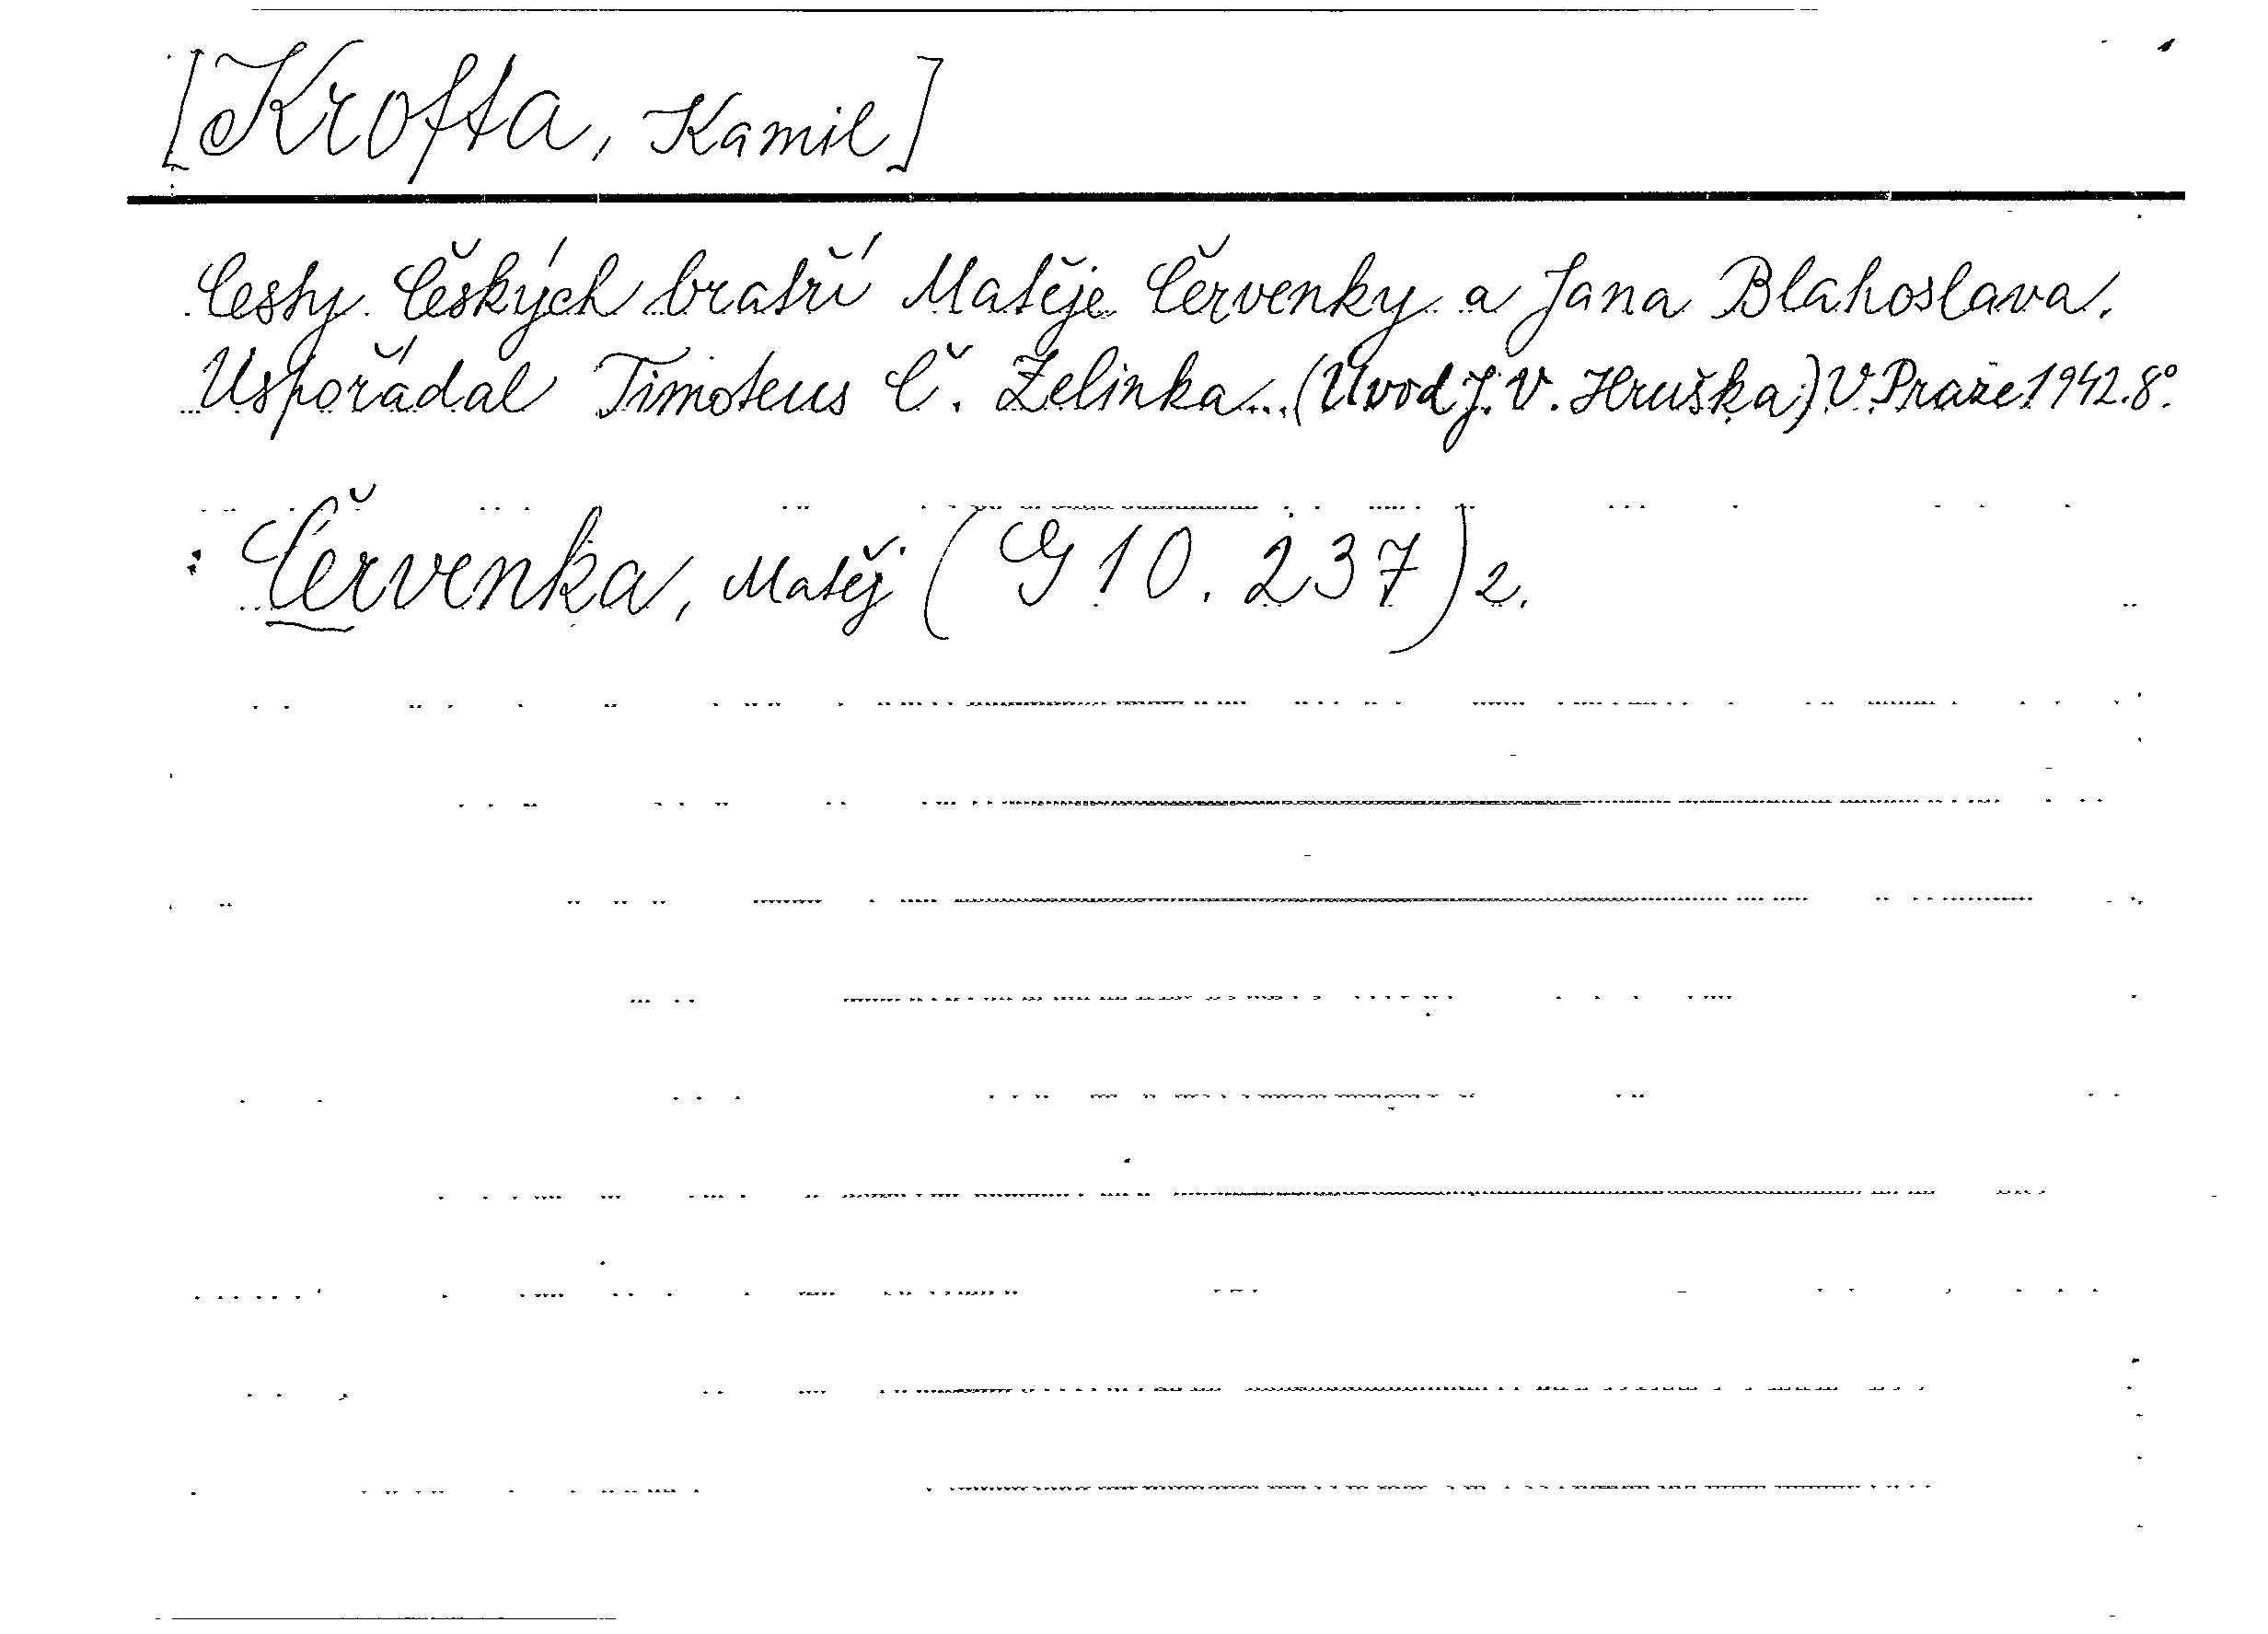 [Krofta, Kamil]
Cesty Českých bratří Matěje Červenky a Jana Blahoslava.
Uspořádal Timoteus Č. Zelinka...(Úvod J. V. Hruška) V Praze 1942. 8°.
: Červenka, Matěj (G 10. 237) 2.